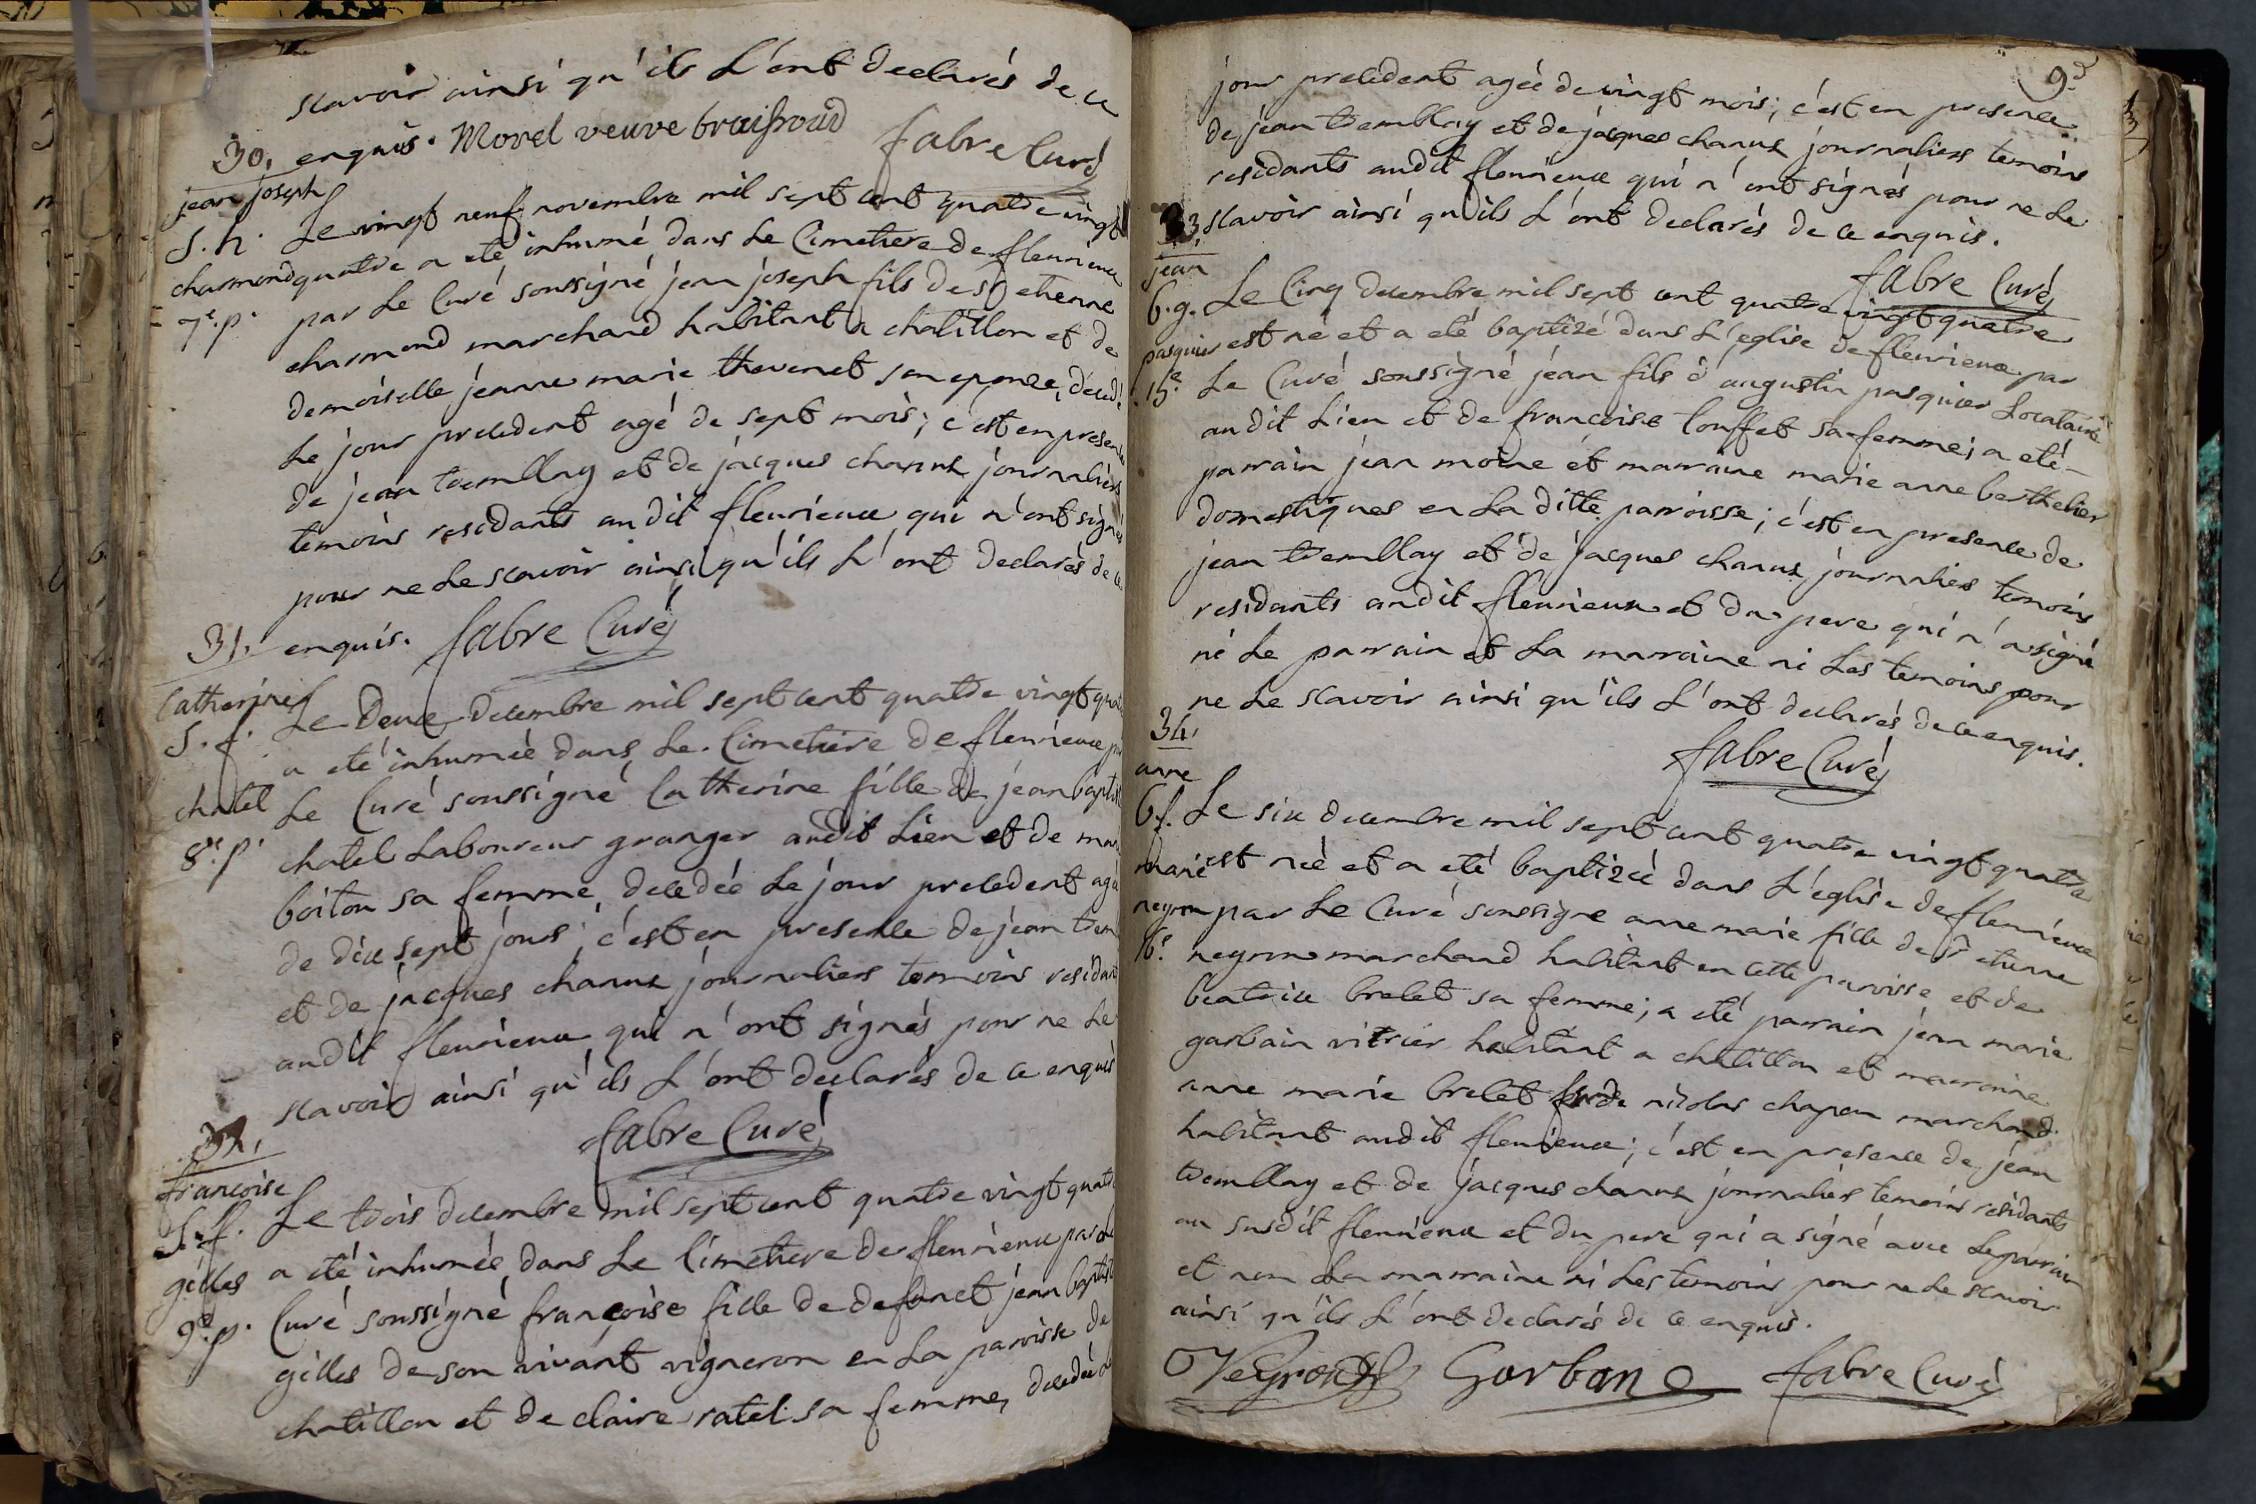 scavoir ainsi qu'ils L'ont declarés de ce
enquis. Morel veuve braissoud
fabre Curé
30.
jean joseph
S. h.
charmond
7e. p.
Le vingt neuf novembre mil sept cent quatre vingt
quatre a eté inhumé dans Le Cimetiere de fleurieux
par Le Curé soussigné jean joseph fils de sr etienne
charmond marchand habitant a chatillon et de
demoiselle jeanne marie thevenet son epouse, decedé
Le jour precedent agé de sept mois; c'est en presence
de jean tremblay et de jacques charux journaliers
temoins residants audit fleurieux qui n'ont signés
pour ne Le scavoir ainsi qu'ils L'ont declarés de ce
enquis. fabre Curé
31.
Catherine
S. f.
chatel
8e. p.
Le deux decembre mil sept cent quatre vingt quatre
a eté inhumée dans Le Cimetiere de fleurieux par
Le Curé soussigné Catherine fille de jean baptiste
chatel Laboureur granger audit Lieu et de
boiton sa femme, decedée Le jour precedent agée
de dix sept jours; c'est en presence de jean trem
et de jacques charux journaliers temoins residants
audit fleurieux qui n'ont signés pour ne Le
scavoir ainsi qu'ils L'ont declarés de ce enquis
fabre Curé
32.
francoise
S. f.
gilles
9e. p.
Le trois decembre mil sept cent quatre vingt quatre
a eté inhumée dans Le Cimetiere de fleurieux par Le
Curé soussigné francoise fille de defunct jean baptiste
gilles de son vivant vigneron en La paroisse de
chatillon et de claire ratel sa femme, decedée
9e
jour precedent agée de vingt mois; c'est en presence
de jean tremblay et de jacques charux journaliers temoins
residants audit fleurieux qui n'ont signés pour ne Le
scavoir ainsi qu'ils L'ont declarés de ce enquis.
fabre Curé
33.
jean
b. g.
pasquier
15e
Le Cinq decembre mil sept cent quatre vingt quatre
est né et a eté baptizé dans L'eglise de fleurieux par
Le Curé soussigné jean fils d'augustin pasquier Locataire
audit Lieu et de francoise louffet sa femme; a eté
parrain jean moine et marraine marie anne berthelier
domestiques en La ditte parroisse; c'est en presence de
jean tremblay et de jacques charux journaliers temoins
residants audit fleurieux et du pere qui n'a signé
ni Le parrain et La marraine ni Les temoins pour
ne Le scavoir ainsi qu'ils L'ont declarés de ce enquis.
fabre Curé
34.
anne
b f.
marie
neyron
16e
Le six decembre mil sept cent quatre vingt quatre
est née et a eté baptizée dans L'eglise de fleurieux
par Le Curé soussigné anne marie fille de sr etienne
neyron marchand habitant en cette parroisse et de
beatrice brelet sa femme; a eté parrain jean marie
garbain vitrier habitant a chatillon et marraine
anne marie brelet fme de nicolas chapeau marchand
habitant audit fleurieux; c'est en presence de jean
tremblay et de jacques charux journaliers temoins residants
au susdit fleurieux et du pere qui a signé avec Le parrain
et non La marraine ni Les temoins pour ne Le scavoir
ainsi qu'ils L'ont declarés de ce enquis.
Neyron Garban fabre Curé